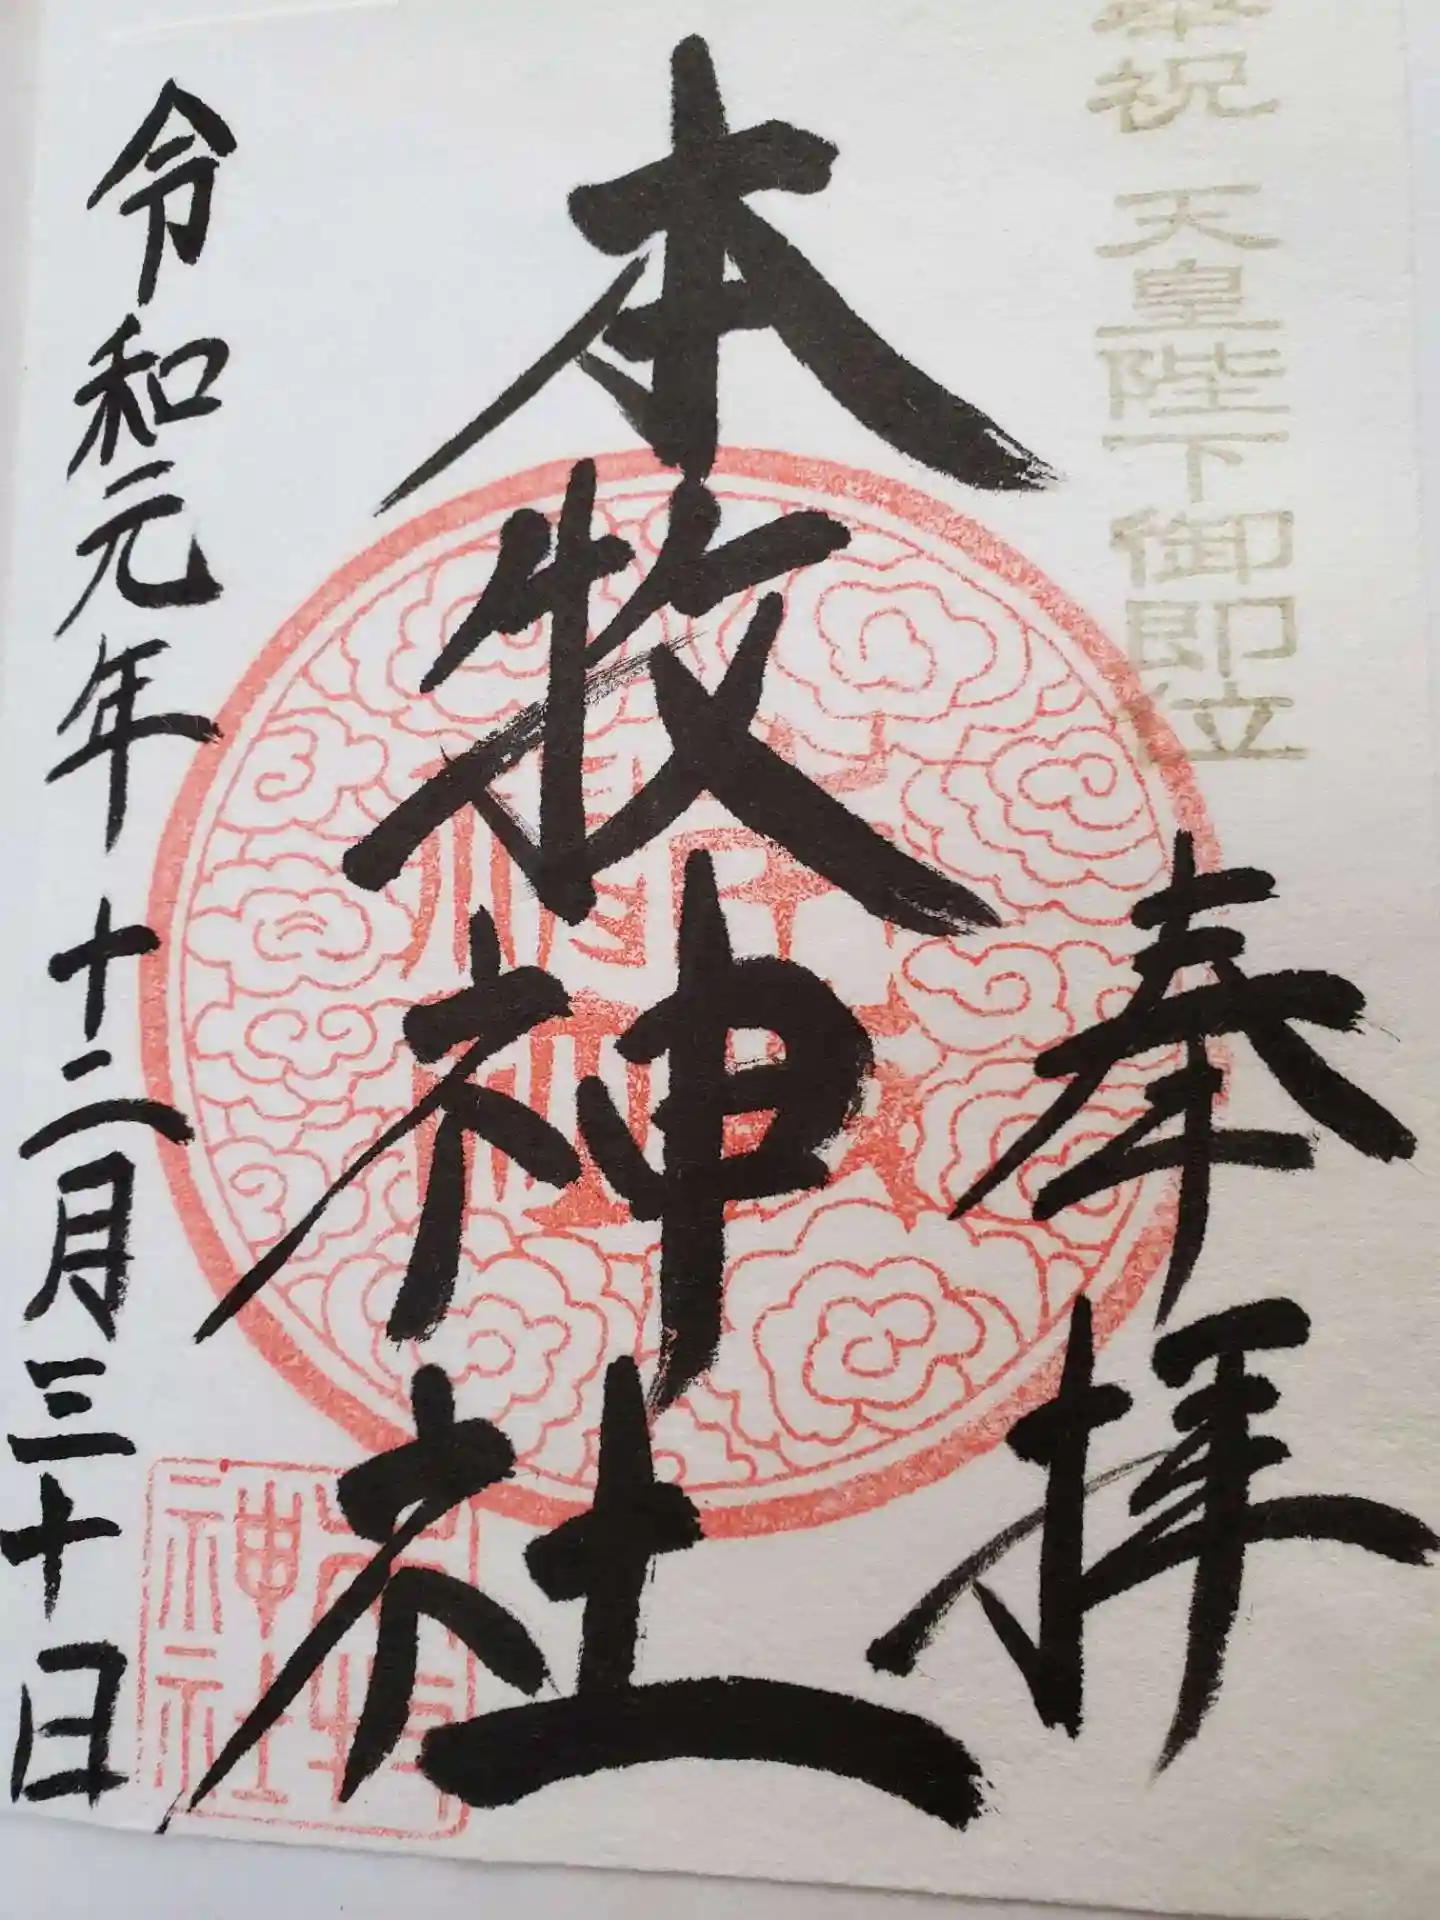 奉祝 天皇陛下御即位
奉拝
本牧神社
令和元年十二月三十日
本牧
神社